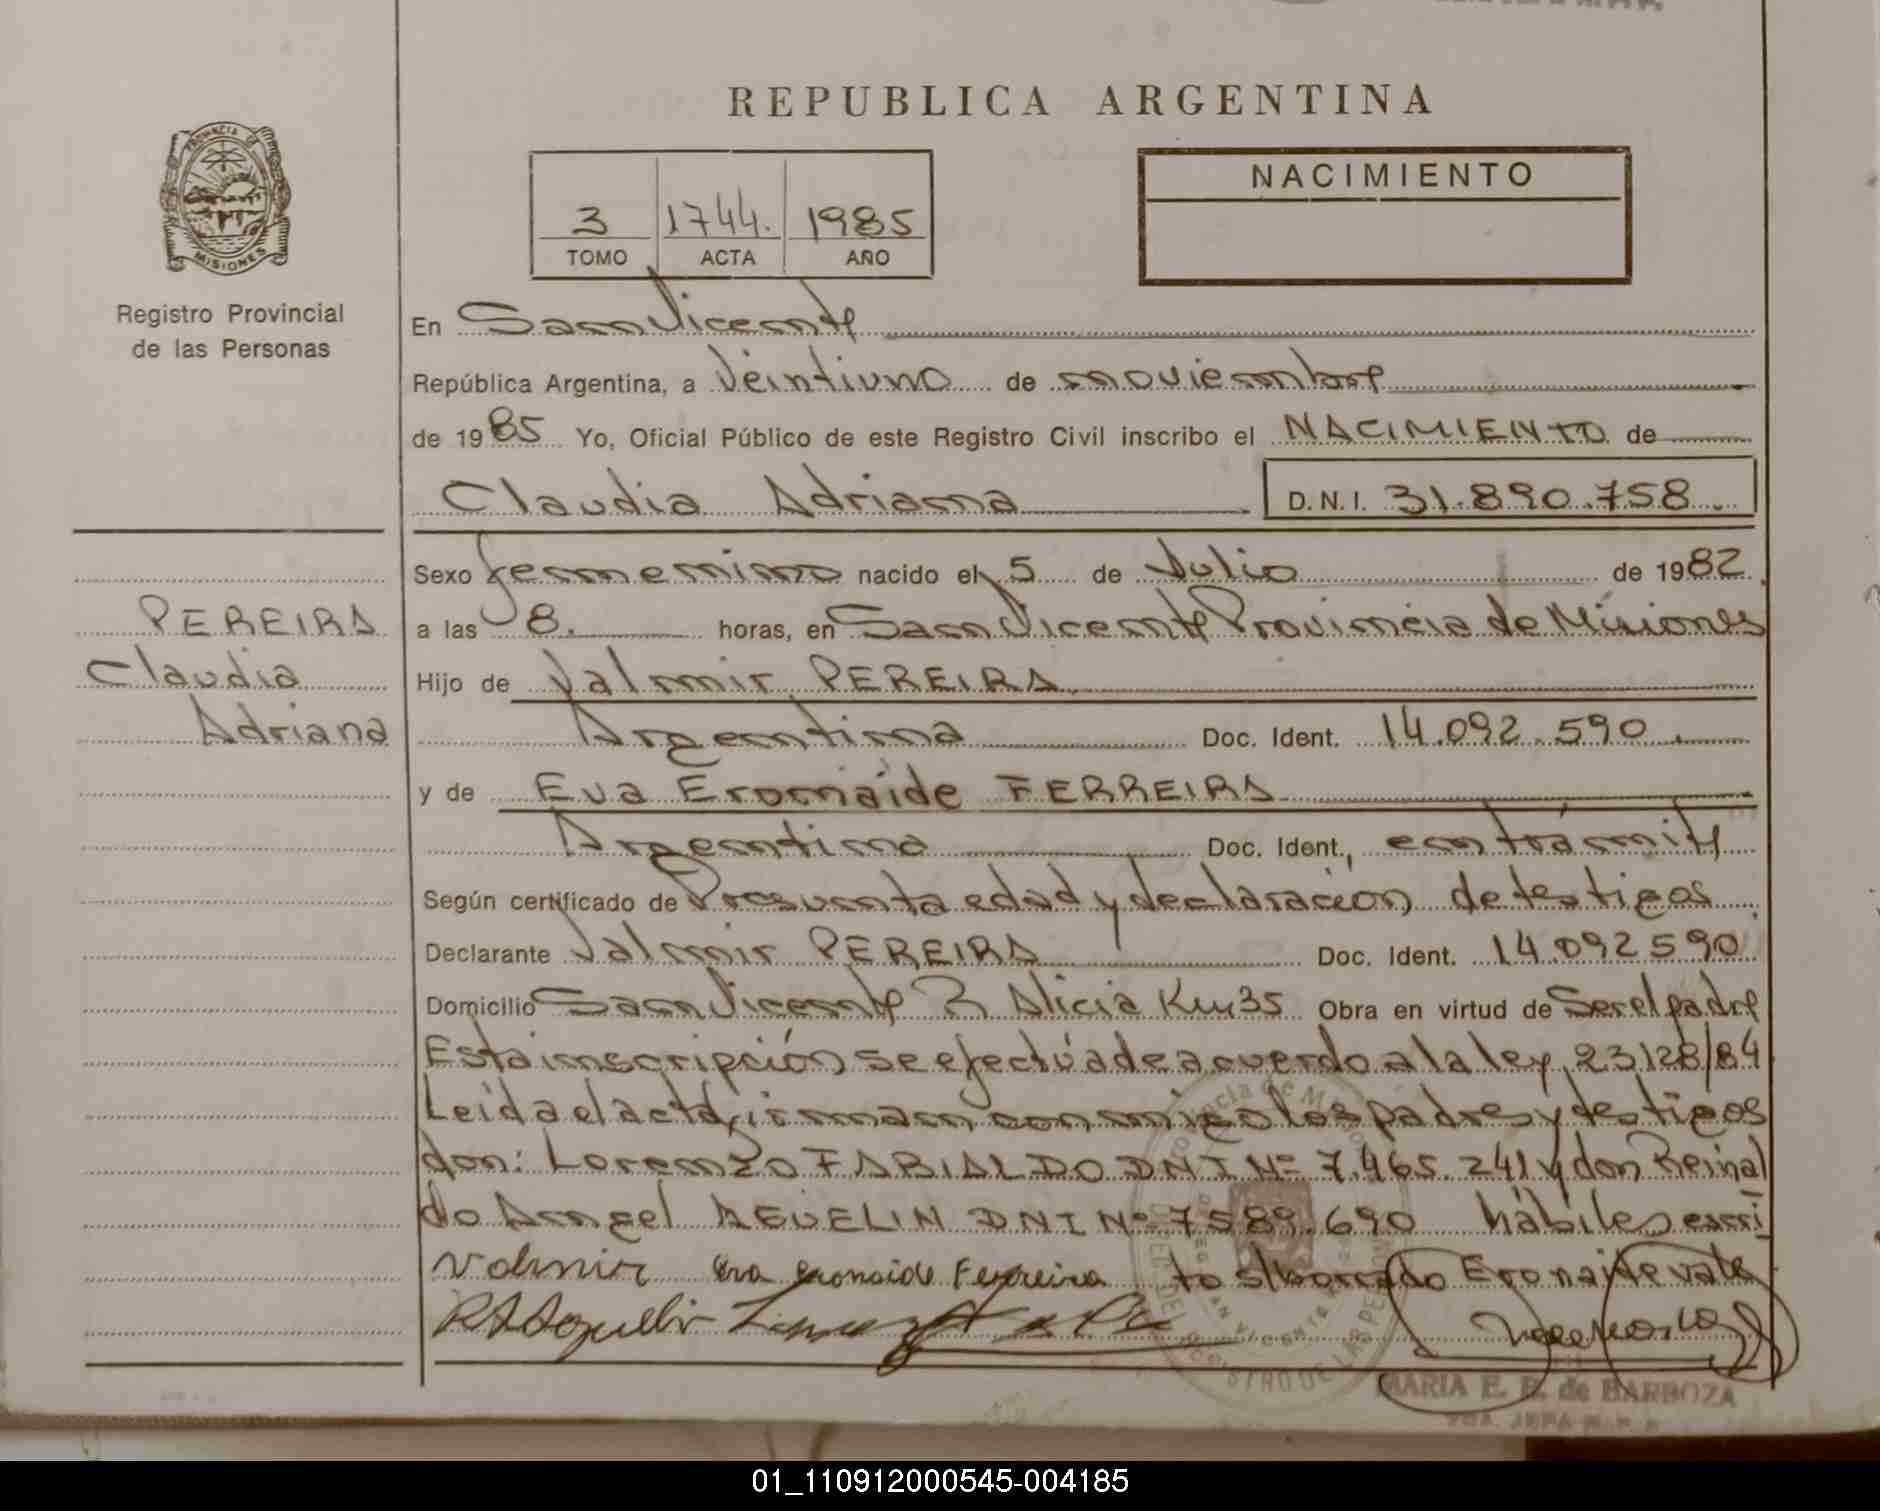 REPUBLICA ARGENTINA
PROVINCIA DE
MISIONES
Registro Provincial
de las Personas
3 1744. 1985
TOMO ACTA AÑO
NACIMIENTO
En San Vicente
República Argentina, a Veintiuno de noviembre
de 1985 Yo, Oficial Público de este Registro Civil inscribo el NACIMIENTO de
Claudia Adriana D.N.I. 31.890.758
Sexo femenino nacido el 5 de Julio de 1982
PEREIRA
Claudia
Adriana
a las 8. horas, en San Vicente Provincia de Misiones
Hijo de Valmir PEREIRA
Argentina Doc. Ident. 14.092.590
y de Eva Eronaide FERREIRA
Argentina Doc. Ident., en trámite
Según certificado de Presunta edad y declaración de testigos
Declarante Valmir PEREIRA Doc. Ident. 14.092590
Domicilio San Vicente Alicia Km 35 Obra en virtud de Ser el padre
Esta inscripción se efectúa de acuerdo a la ley 23128/84
Leída el acta, firman conmigo los padres y testigos
don: Lorenzo FABIALDO DNI Nº 7.465.241 y don Reinal
do Angel DNI Nº 7589.690 hábiles
Valmir Eva Eronaide Ferreira to s/borrado Eronaide vale
MARIA E. B. de BARBOZA
01_110912000545-004185